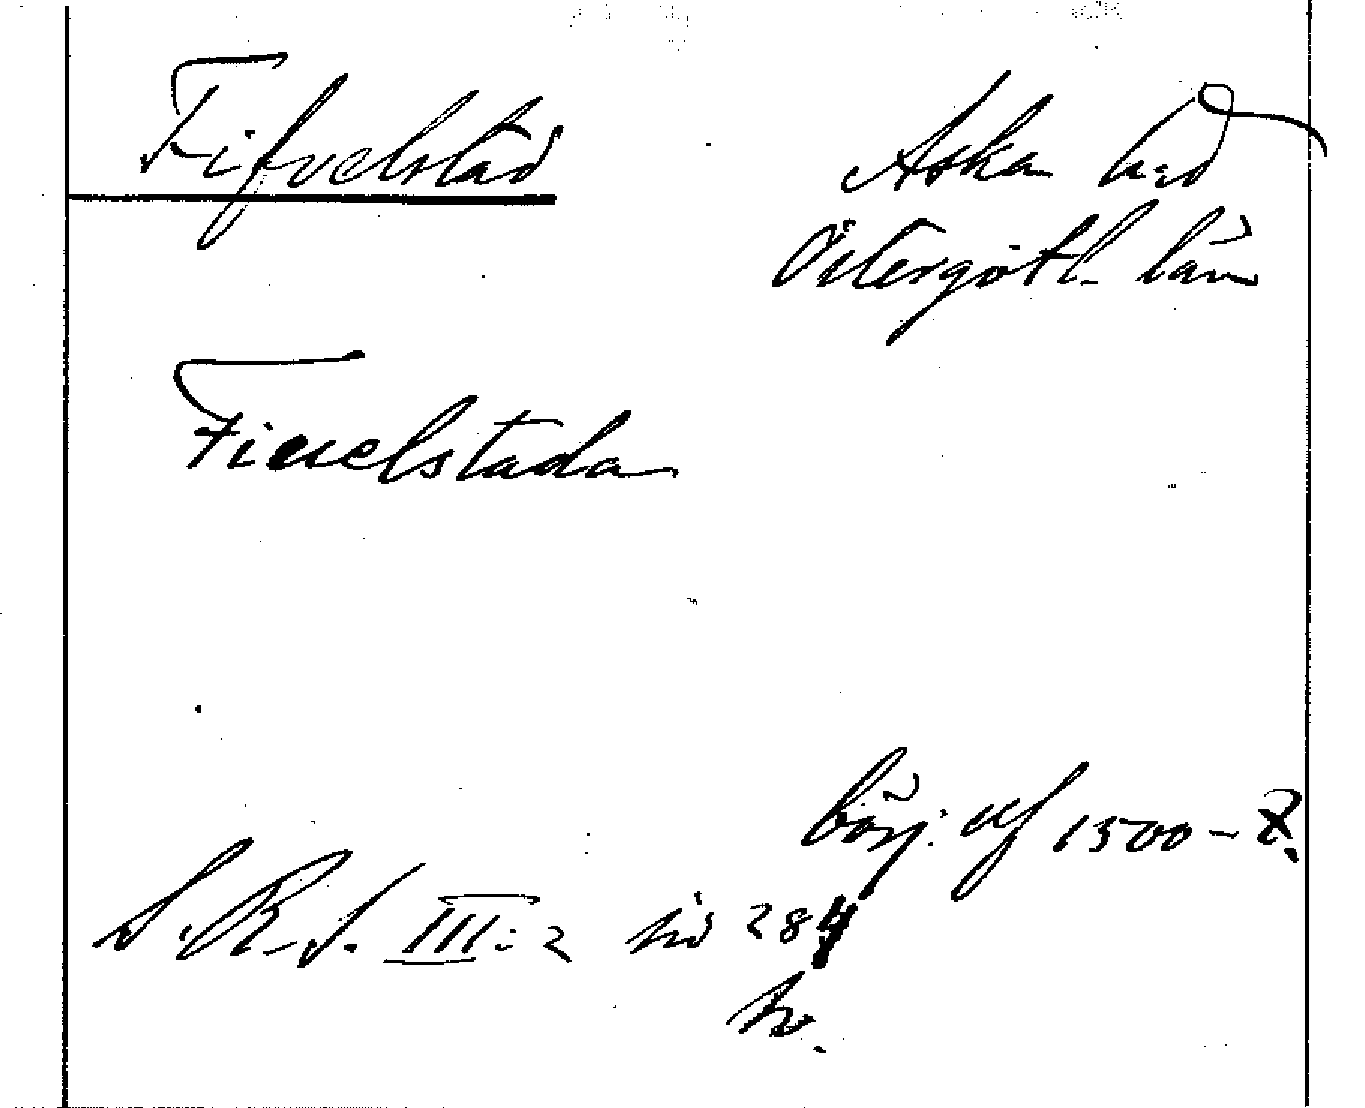 Fifvelstad
Aska hrd
Östergötl. län
Fieuelstada
börj. af 1500-t.
S.R.S. III:2 sid 284